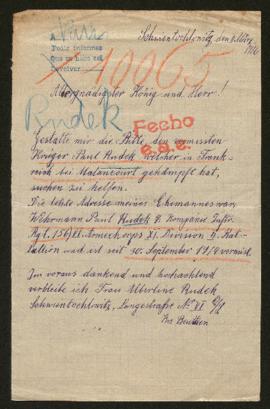 Schwientochlowitz, den 8. März
1916
A
Pedir informes
Que en caso sea
Devolver
10065
Allergnädigster König und Herr!
Rudek
Fecho
e.a.e.
Gestatte mir die Bitte, den vermissten
Krieger Paul Rudek welcher in Frank-
reich bei Malancourt gekämpft hat,
suchen zu helfen.
Die letzte Adresse meines Ehemannes war
Wehrmann Paul Rudek 9. Kompanie Inftr.
Rgt. 156 Armeekorps XI. Division 9. Bat-
tallion und ist seit 30. September 1914 vermisst.
Im voraus dankend und hochachtend
verbleibe ich Frau Rudek
Schwientochlowitz, Langestraße No VI O/S
Beuthen